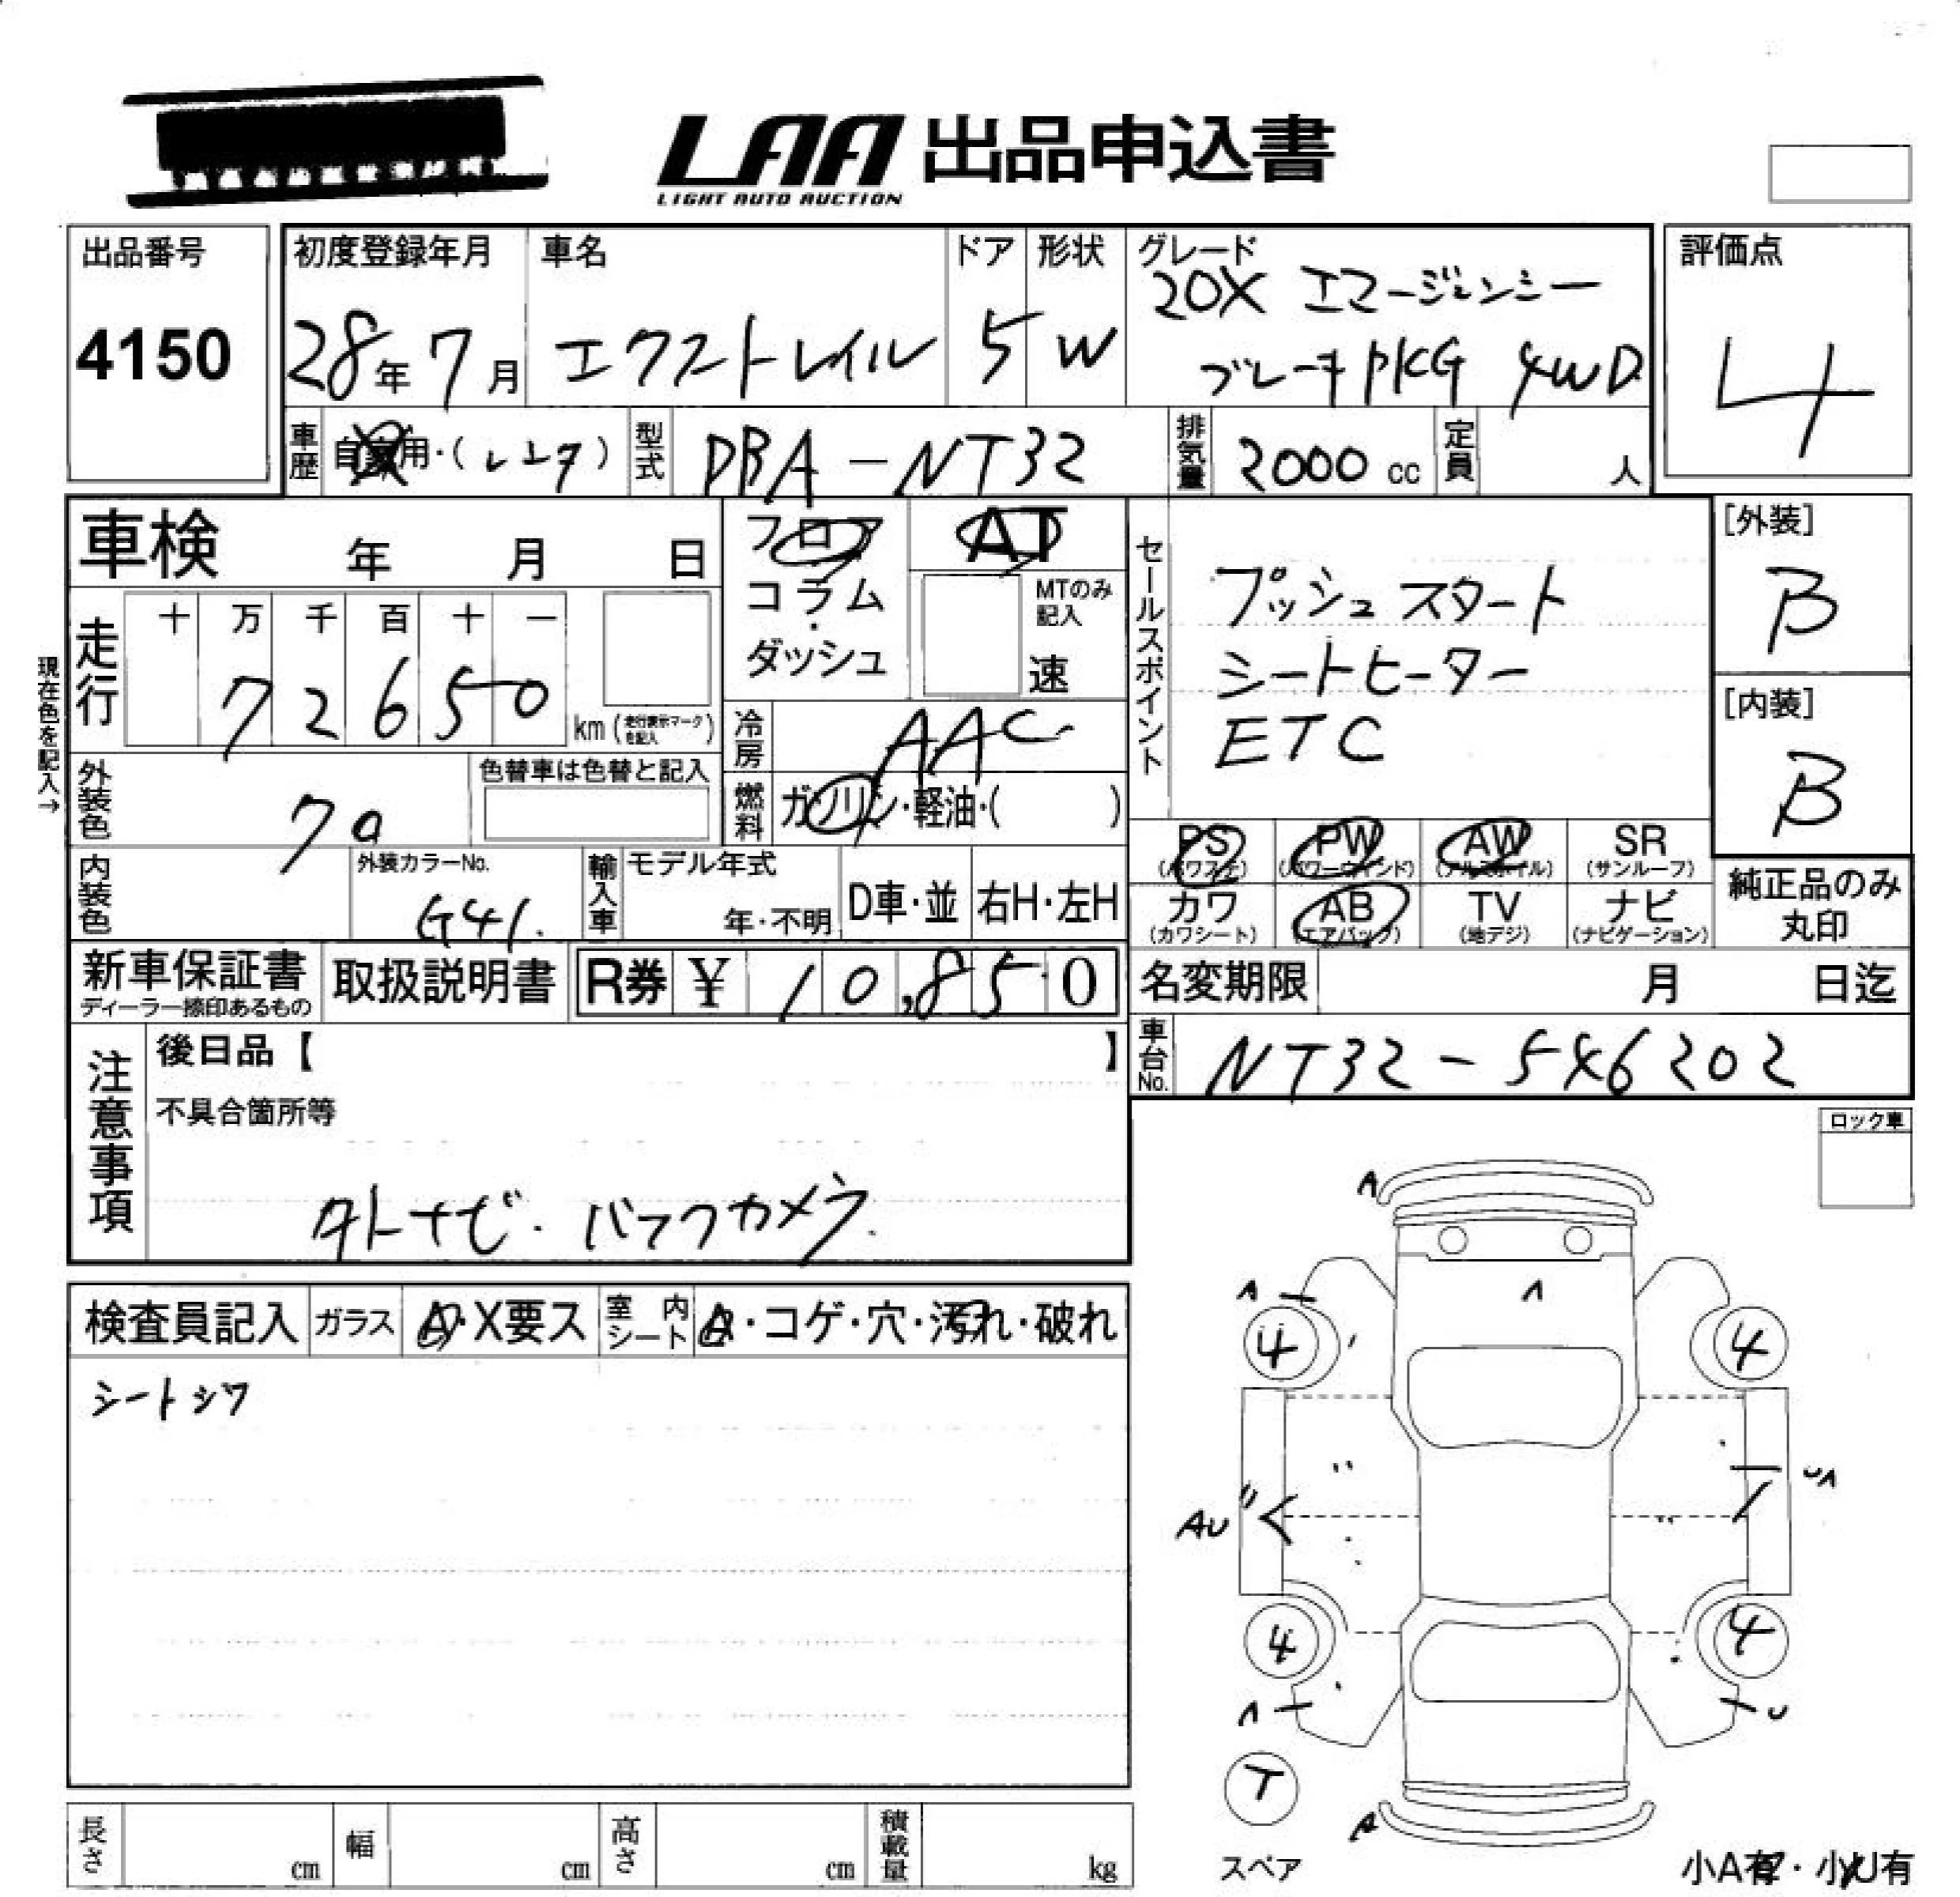 LAA 出品申込書
LIGHT AUTO AUCTION
出品番号
4150
初度登録年月
28年7月
車名
エクストレイル
ドア
5
形状
W
グレード
20X エマージェンシー
ブレーキPKG 4WD
評価点
4
車歴 自家用・(レンタ)
型式 DBA-NT32
排気量 2000 cc
定員 人
車検 年 月 日
フロア
コラム
・
ダッシュ
AT
MTのみ
記入
速
セールスポイント
プッシュスタート
シートヒーター
ETC
[外装]
B
[内装]
B
現在色を記入→
走行
十 万 千 百 十 一
7 2 6 5 0
km (走行表示マークを記入)
冷房 AAC
燃料 ガソリン・軽油・( )
外装色
色替車は色替と記入
内装色
外装カラーNo.
G41.
輸入車
モデル年式
年・不明
D車・並
右H・左H
PS
(パワステ)
PW
(パワーウインド)
AW
(アルミホイル)
SR
(サンルーフ)
カワ
(カワシート)
AB
(エアバック)
TV
(地デジ)
ナビ
(ナビゲーション)
純正品のみ
丸印
新車保証書
ディーラー捺印あるもの
取扱説明書
R券 ¥ 10,850
名変期限 月 日迄
車台No. NT32-546202
注意事項
後日品【 】
不具合箇所等
外ナビ. バックカメラ.
ロック車
検査員記入
ガラス
A・X要ス
室内シート
A・コゲ・穴・汚れ・破れ
シートシワ
A
A
A
4
4
AU
UA
4
4
A
U
T
スペア
A
小A有・小U有
長さ cm
幅 cm
高さ cm
積載量 kg